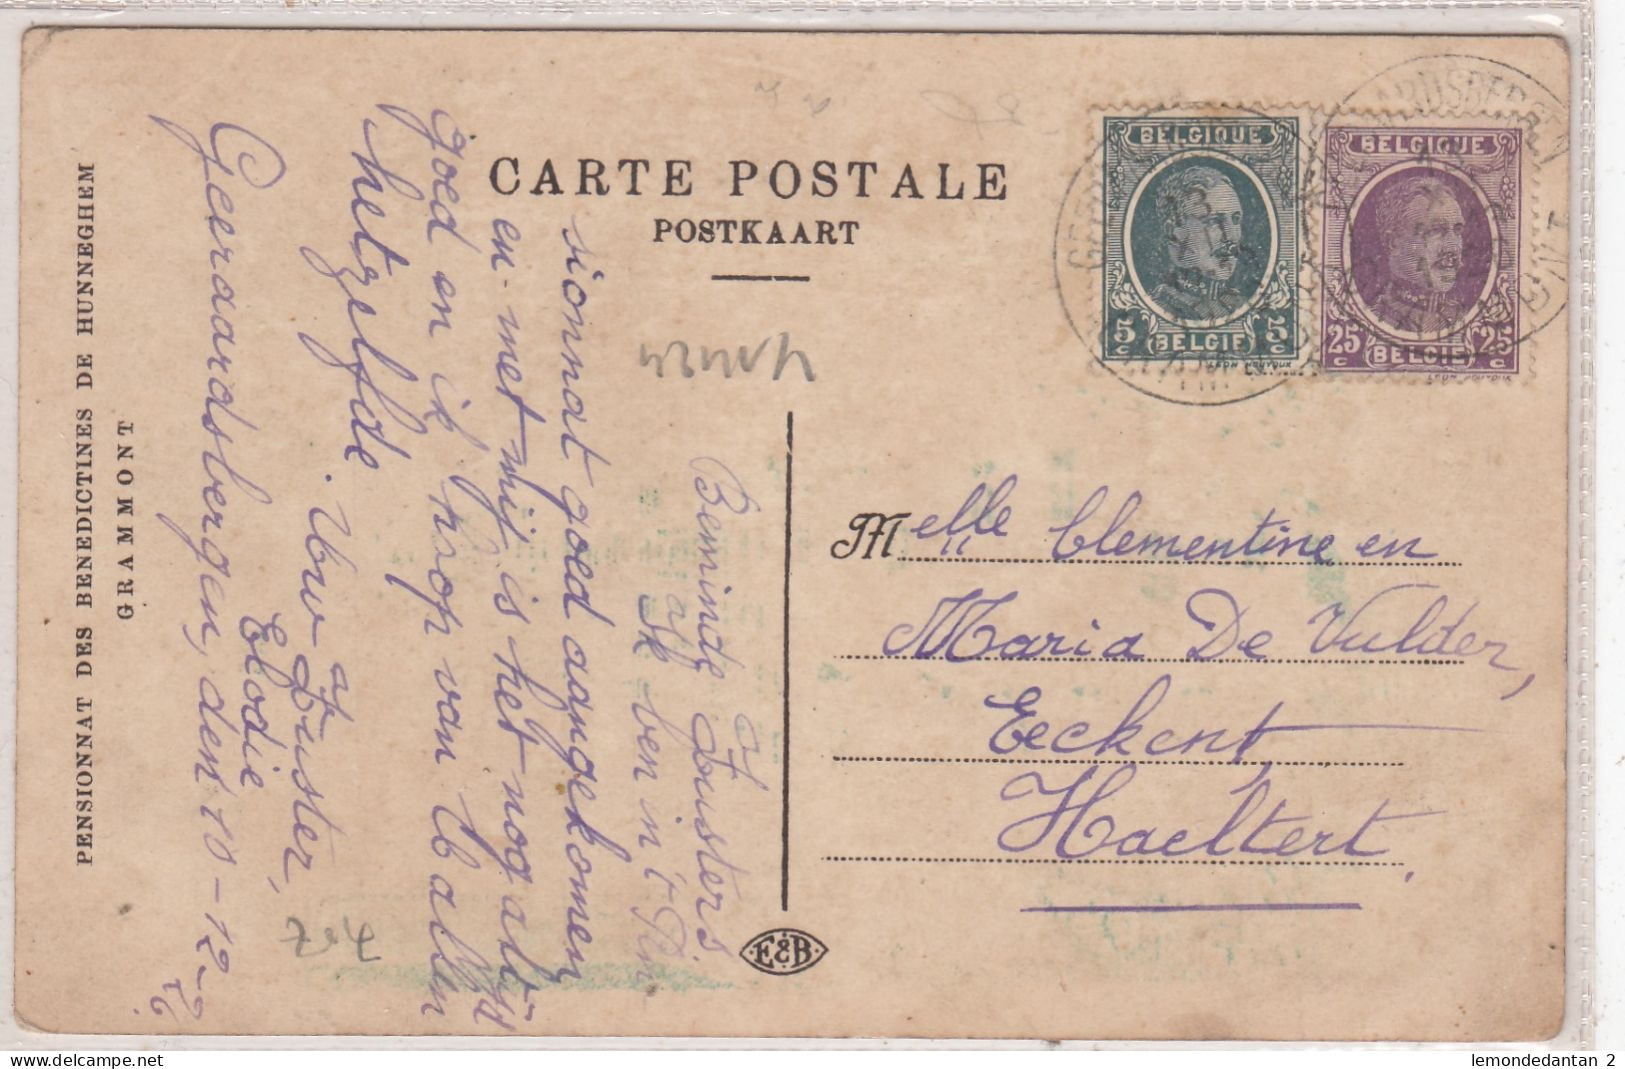 CARTE POSTALE
POSTKAART
PENSIONNAT DES BENEDICTINES DE HUNNEGHEM
GRAMMONT
BELGIQUE
5c 5c
BELGIË
BELGIQUE
25c 25c
BELGIË
Beminde Zusters
Ik ben in 't Pen
sionnat goed aangekomen
en met mij is het nog altijd
goed en ik hoop van U allen
hetzelfde.
Uw Zuster,
Elodie
Geeraardsbergen, den 10-12-
Melle Clementine en
Maria De Vulder,
Eeckent,
Haeltert.
E&B
lemondedantan 2